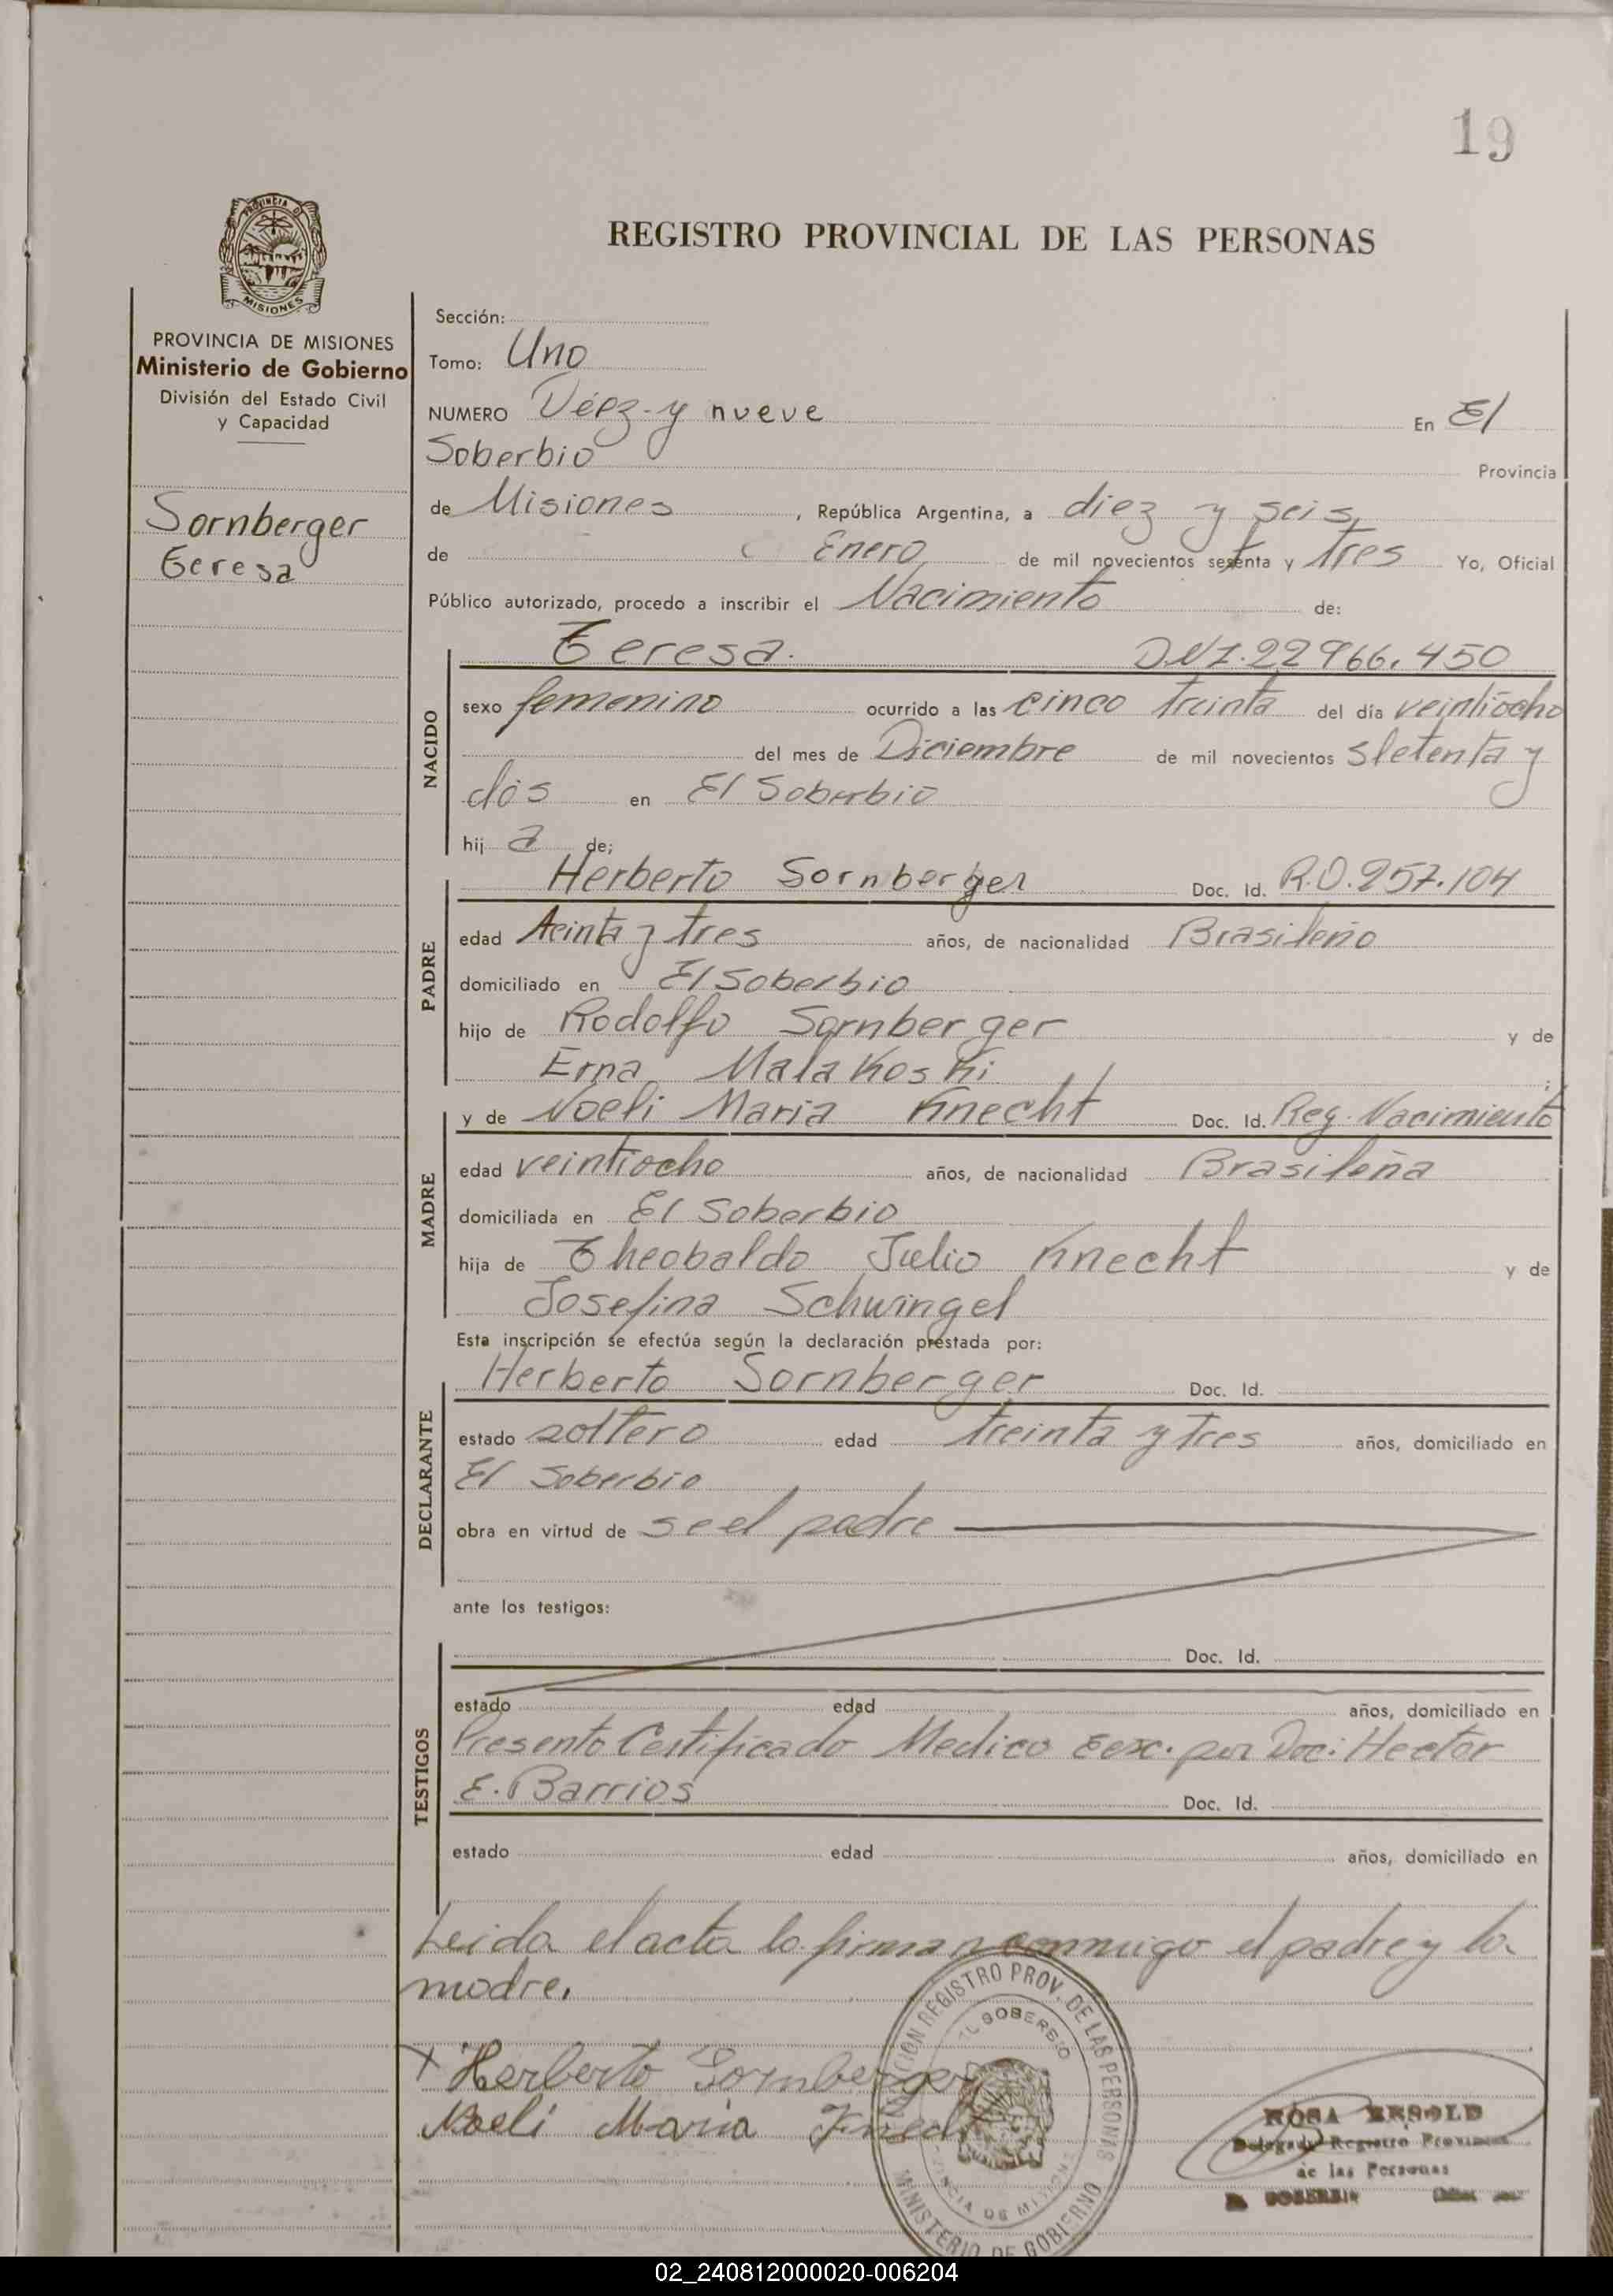 19
PROVINCIA DE
MISIONES
REGISTRO PROVINCIAL DE LAS PERSONAS
PROVINCIA DE MISIONES
Ministerio de Gobierno
División del Estado Civil
y Capacidad
Sornberger
Teresa
Sección:
Tomo: Uno
NUMERO Diez y nueve En El
Soberbio Provincia
de Misiones, República Argentina, a diez y seis
de Enero de mil novecientos setenta y tres Yo, Oficial
Público autorizado, procedo a inscribir el Nacimiento de:
Teresa. DNI.22966.450
NACIDO
sexo femenino ocurrido a las cinco treinta del día veintiocho
del mes de Diciembre de mil novecientos setenta y
dos en El Soberbio
hij a de;
Herberto Sornberger Doc. Id. R.O.257.104
PADRE
edad treinta y tres años, de nacionalidad Brasileño
domiciliado en El Soberbio
hijo de Rodolfo Sornberger y de
Erna Malakoski ;
y de Noeli Maria Knecht Doc. Id. Reg. Nacimiento
MADRE
edad veintiocho años, de nacionalidad Brasileña
domiciliada en El Soberbio
hija de Theobaldo Julio Knecht y de
Josefina Schwingel
Esta inscripción se efectúa según la declaración prestada por:
Herberto Sornberger Doc. Id.
DECLARANTE
estado soltero edad treinta y tres años, domiciliado en
El Soberbio
obra en virtud de se el padre
ante los testigos:
Doc. Id.
TESTIGOS
estado edad años, domiciliado en
Presento Certificado Medico por Doc: Hector
E. Barrios Doc. Id.
estado edad años, domiciliado en
Leida el acta la firman conmigo el padre y la
madre.
x Herberto Sornberger
Noeli Maria Knecht
REGISTRO PROV. DE LAS PERSONAS
EL SOBERBIO
PROVINCIA DE MISIONES
MINISTERIO DE GOBIERNO
ROSA
Delegada Registro Provincial
de las Personas
02_240812000020-006204